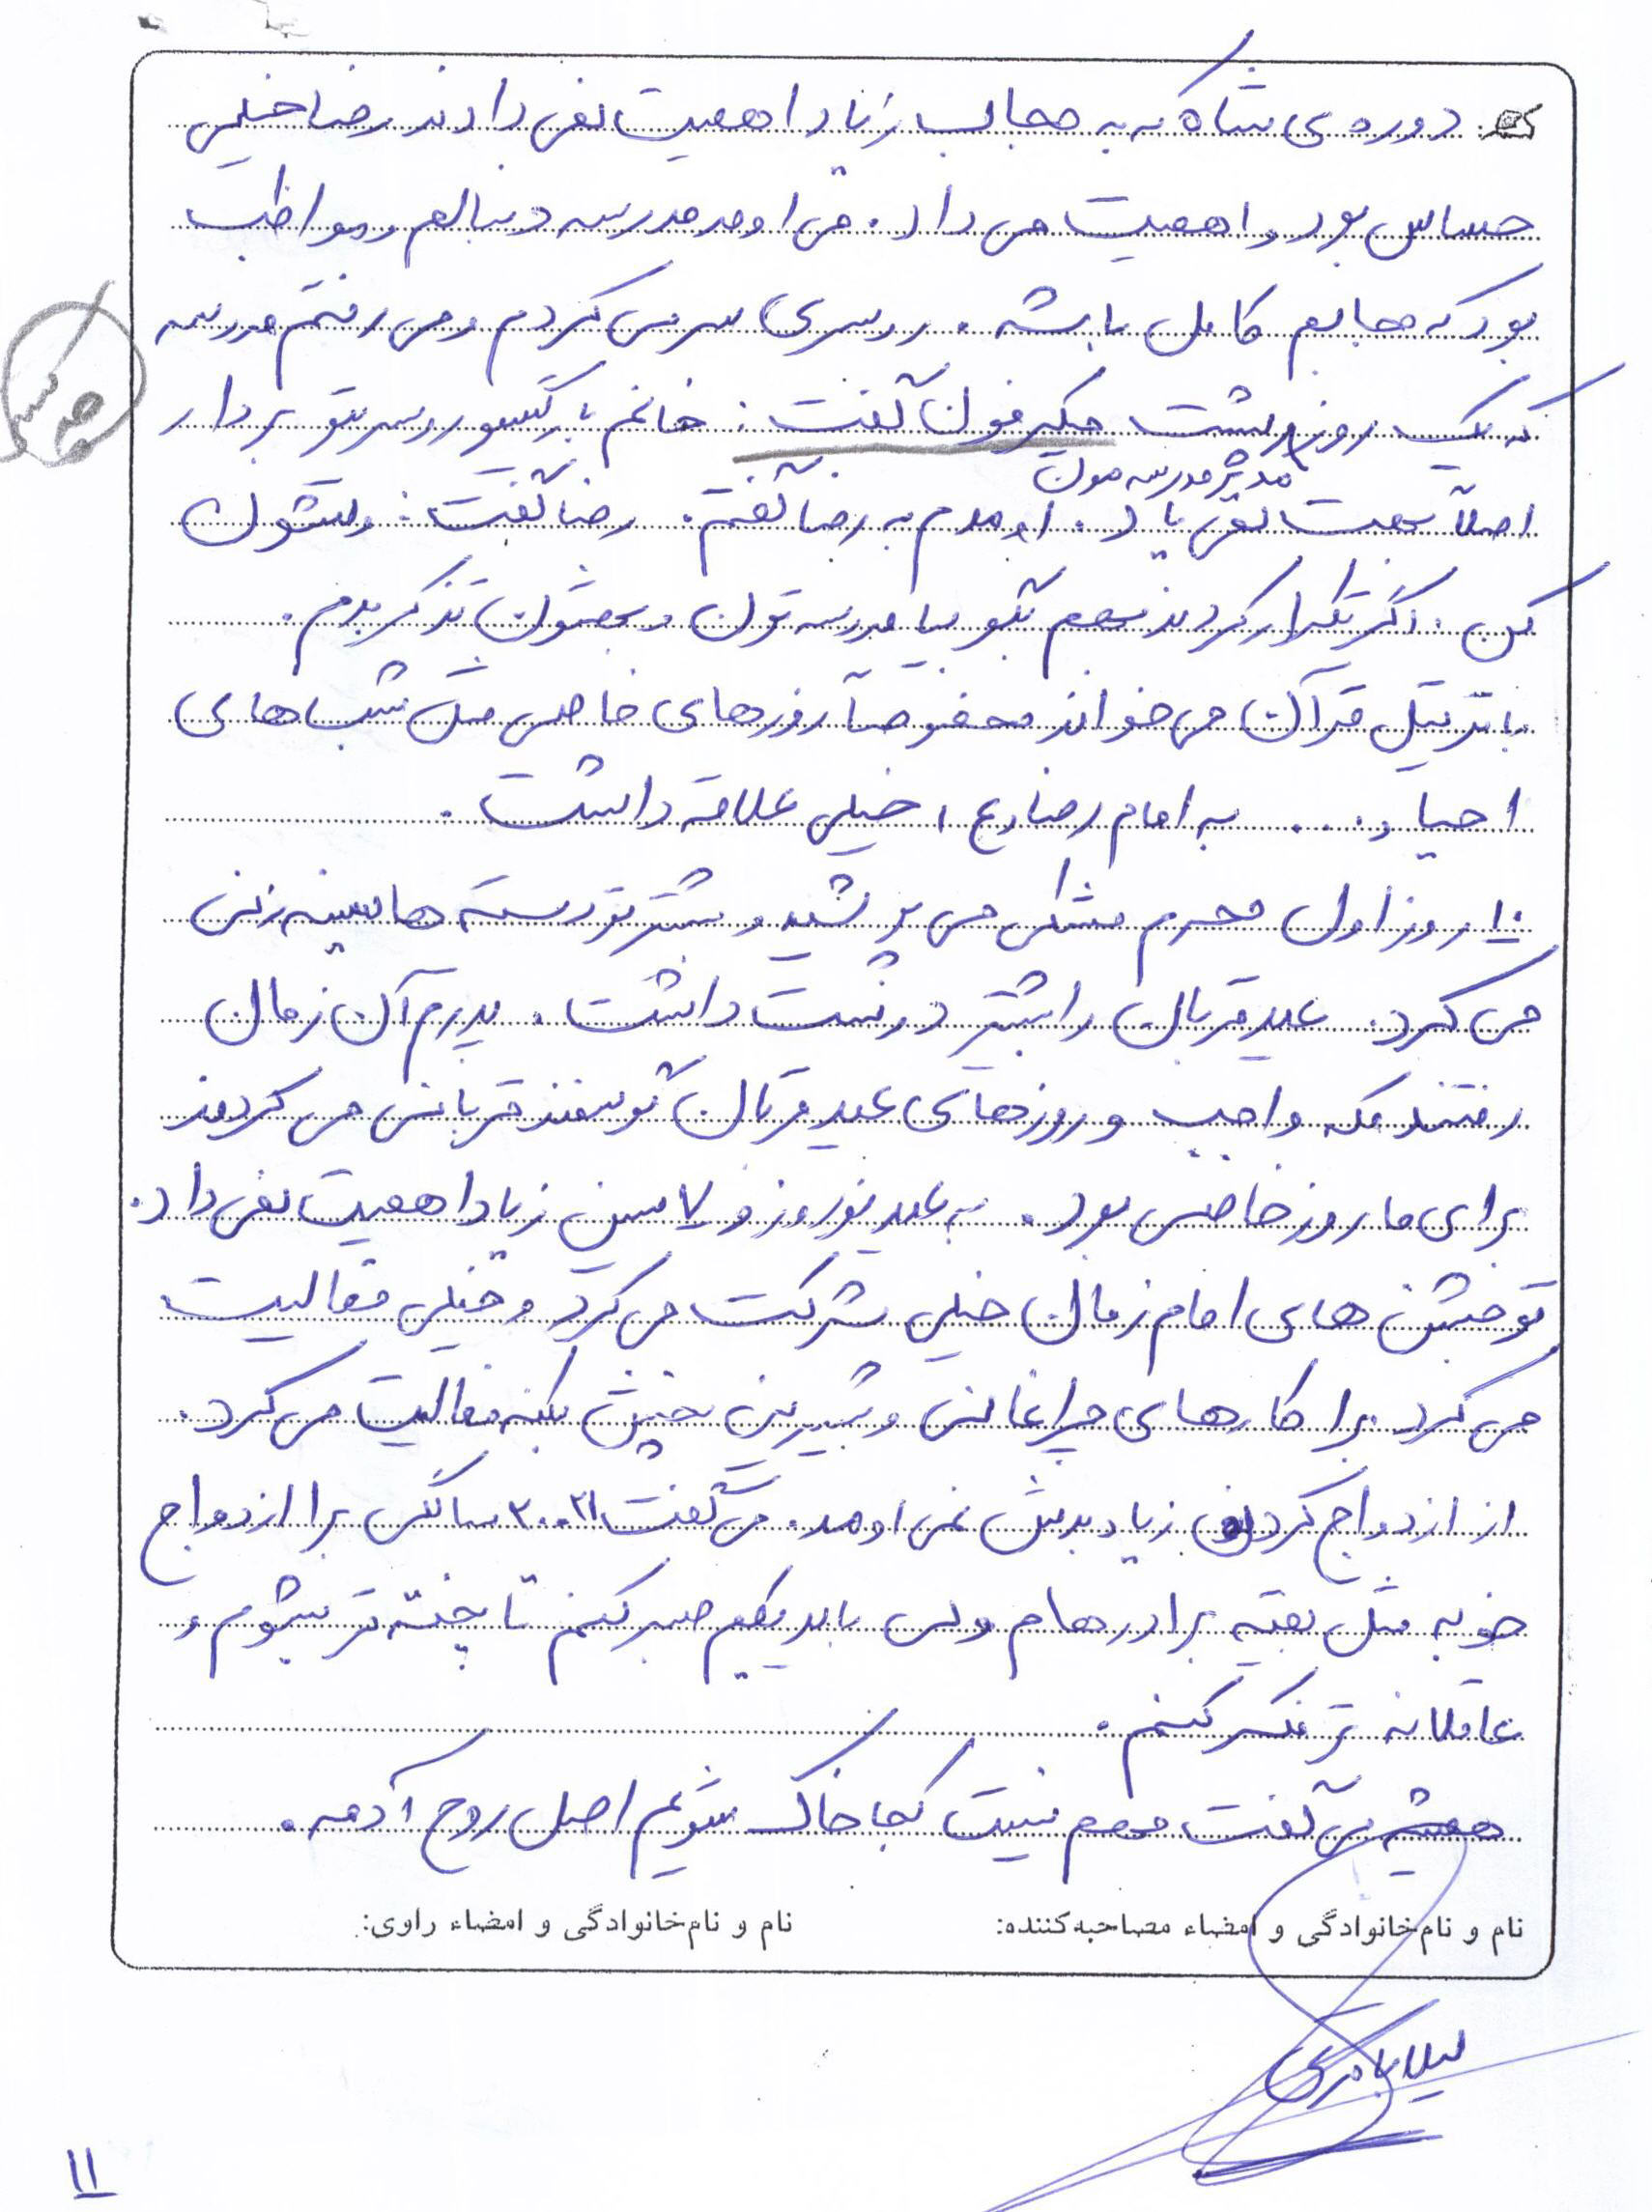 دوره ی شاه که به حجاب زیاد اهمیت نمی دادند رضا خیلی
حساس بود و اهمیت می داد. می اومد مدرسه دنبالم و مواظب
بود که حجابم کامل باشه. روسری سر می کردم و می رفتم مدرسه
که یک روز پشت میکروفون گفت: خانم باز گیسو روسریتو بردار
مدیر مدرسه مون
اصلاً بهت نمی یاد. اومدم به رضا گفتم. رضا گفت: ولشون
کن. اگر تکرار کردند بهم بگو بیا مدرسه تون و بهشون تذکر بدم.
با ترتیل قرآن می خواند مخصوصاً روزهای خاص مثل شب های
احیا و .... به امام رضا (ع) خیلی علاقه داشت.
۱۰ روز اول محرم مشکی می پوشید و بیشتر تو دسته ها سینه زنی
می کرد. عید قربان را بیشتر دوست داشت. پدرم آن زمان
رفتند مکه واجب و روزهای عید قربان گوسفند قربانی می کردند
برای ما روز خاصی بود. به عید نوروز و ۷ سین زیاد اهمیت نمی داد.
تو جشن های امام زمان خیلی شرکت می کرد و خیلی فعالیت
می کرد برا کارهای چراغانی و شیرینی پخش بکنه فعالیت می کرد.
از ازدواج کردن زیاد بدش نمی اومد. می گفت ۲۰، ۲۱ سالگی برا ازدواج
خوبه مثل بقیه برادرهام ولی باید یکم صبر کنم تا پخته تر بشوم و
عاقلانه تر فکر کنم.
همیشه می گفت مهم نیست کجا خاک شویم اصل روح آدمه.
نام و نام خانوادگی و امضاء مصاحبه کننده:
نام و نام خانوادگی و امضاء راوی:
لیلا باقری
۱۱